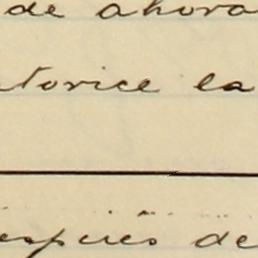 de ahora
torice la
espués de